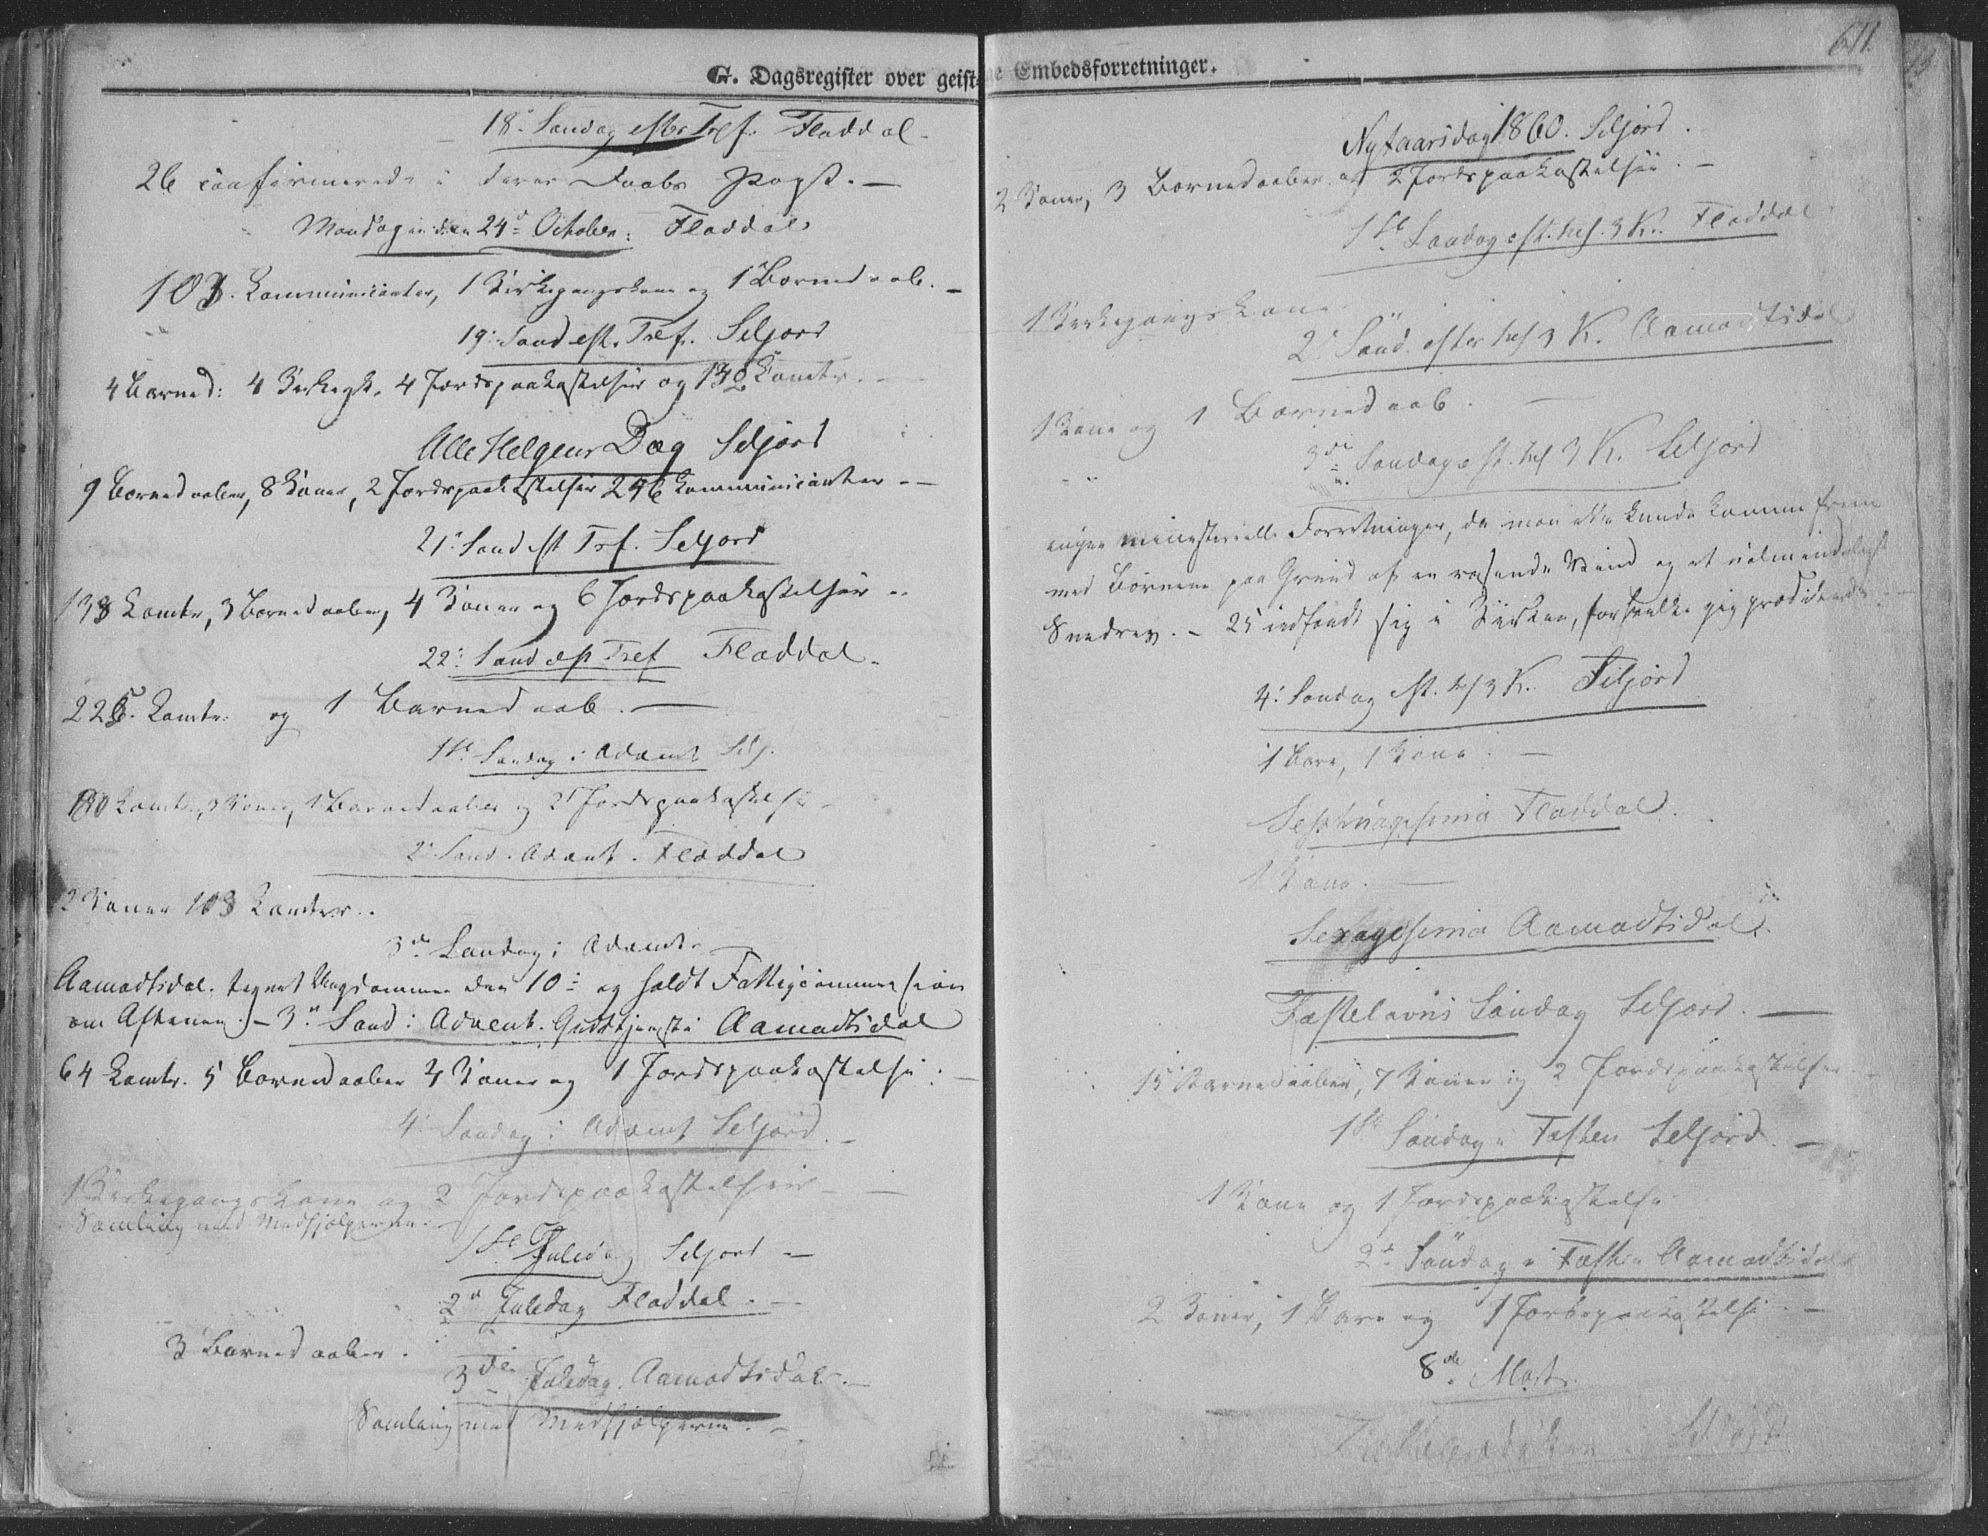 G. Dagsregister over geist
18. Søndag efter Tref. Fladdal
26 confirmerede i deres Daabs Pagt. —
Mandagen den 24de October. Fladdal
103. Communicanter, 1 Kirkegangskone og 1 Barnedaab. —
19. Sønd eft. Tref. Seljord
4 Barned: 4 Kirkegk. 4 Jordspaakastelser og 138 Comtr. —
Alle Helgens Dag Seljord
9 Barnedaaber, 8 Koner, 2 Jordspaakastelser 246 Communicanter —
21. Sønd eft Tref. Seljord
138 Comtr, 3 Barnedaaber, 4 Koner og 6 Jordspaakastelser —
22. Sønd eft Tref Fladdal
225. Comtr. og 1 Barnedaab. —
1ste Søndag i Advent Selj.
180 Comtr., 3 Koner, 1 Barnedaaber og 2 Jordspaakastelser
2. Sønd. Advent. Fladdal
2 Koner 103 Comtr..
3de Søndag i Advent
Aamodtsdal. tegnet Ungdommen den 10de og holdt Fattigcommission
om Aftenen. — 3de Sønd i Advent. Gudstjeneste i Aamodtsdal
64 Comtr. 5 Barnedaaber 4 Koner og 1 Jordspaakastelse. —
4. Søndag i Advent Seljord. —
1 Kirkegangskone og 2 Jordspaakastelser —
Samling med Medhjælperne. —
1ste Juledag Seljord —
2den Juledag Fladdal. —
3 Barnedaaber.
3die Juledag. Aamodtsdal. —
Samling med Medhjælperne. —
e Embedsforretninger.
611.
Nytaarsdag 1860. Seljord.
2 Koner, 3 Barnedaaber og 2 Jordspaakastelser. —
1ste Søndag eft. hel. 3 K. Fladdal
1 Kirkegangskone
2. Sønd. efter hel 3 K. Aamodtsdal
1 Kone og 1 Barnedaab. —
3die Søndag eft. hel 3 K. Seljord
ingen ministerielle Forretninger, da man ikke kunde komme frem
med Børnene paa Grund af en rasende Vind og et ualmindeligt
Snedrev. — 25 indfandt sig i Kirken, for hvilke jeg prædikede. —
4. Søndag eft. hel 3 K. Seljord
1 Barn, 1 Kone. —
Septuagesima Fladdal.
1 Kone. —
Sexagesima Aamodtsdal.
Fastelavns Søndag Seljord. —
15 Barnedaaber, 7 Koner og 2 Jordspaakastelser —
1ste Søndag i Fasten Seljord. —
1 Kone og 1 Jordspaakastelse
2den Søndag i Fasten Aamodtsdal
2 Koner, 1 Barn og 1 Jordspaakastelse. —
8de Marts.
Seljord